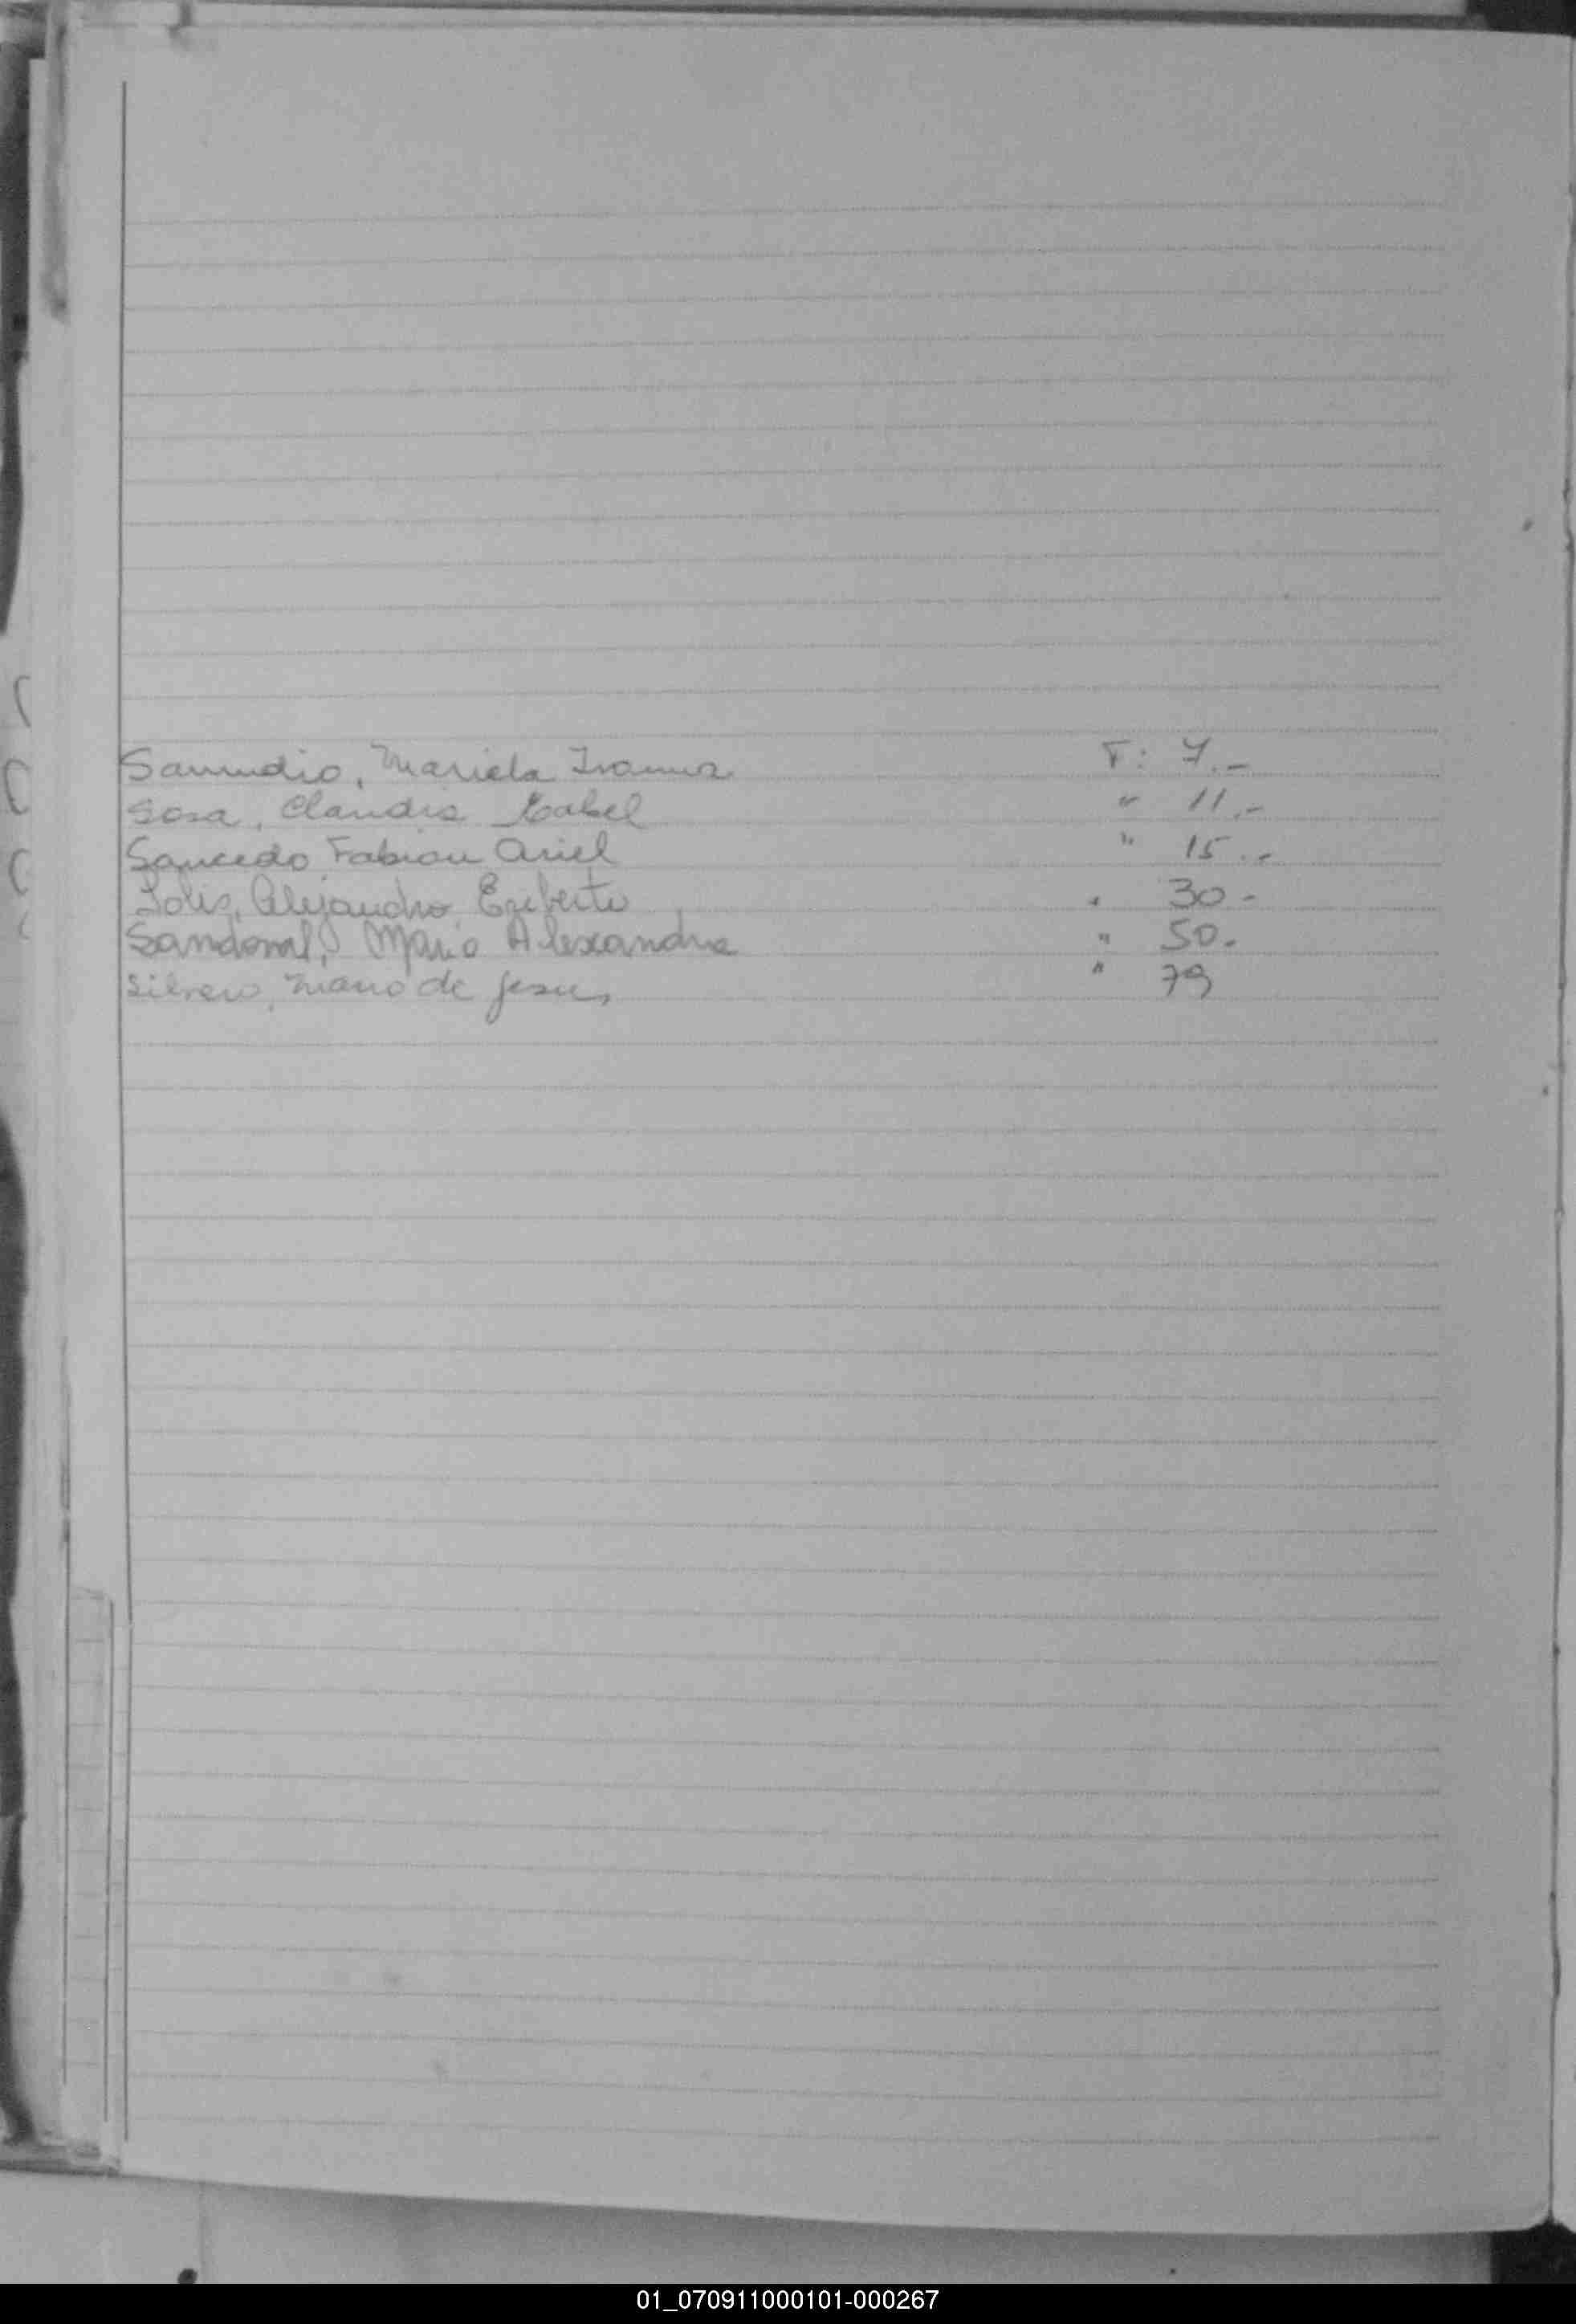 Samudio, Mariela Ivanna F: 7.-
Sosa, Claudia Isabel " 11.-
Saucedo Fabian Ariel " 15.-
Solis, Alejandro Eriberto " 30-
Sandoval, Mario Alexandro " 50.
Silvero, Mario de Jesus " 79
01_070911000101-000267